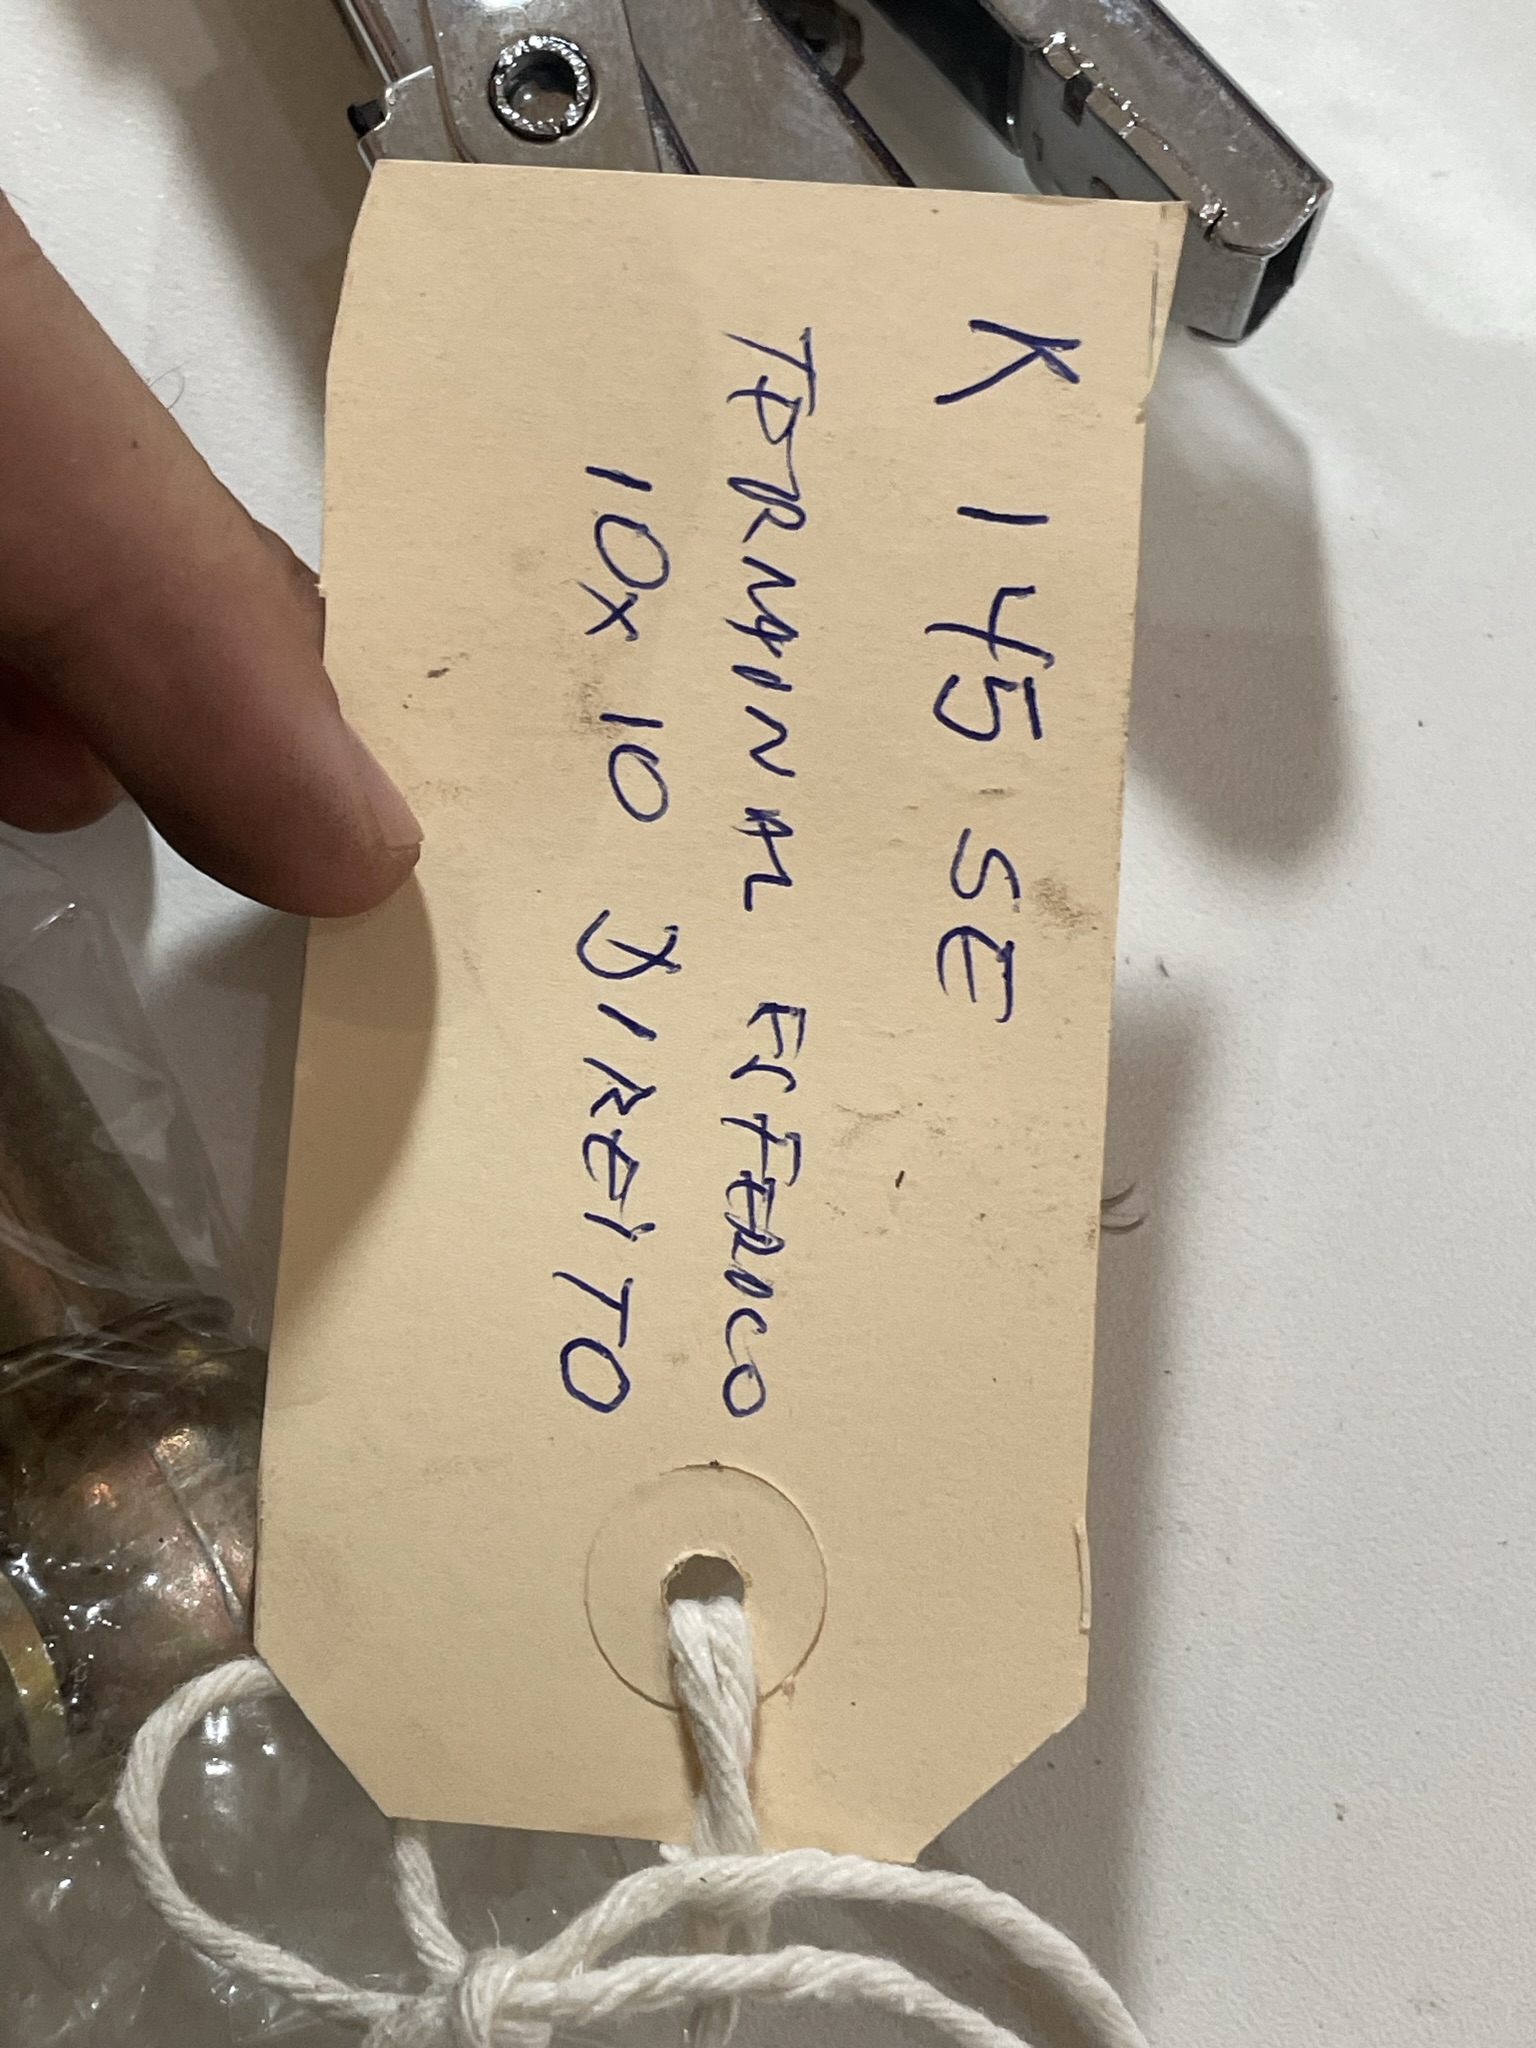 K 145.SE
TERMINAL ESFERICO
10X10 DIREITO